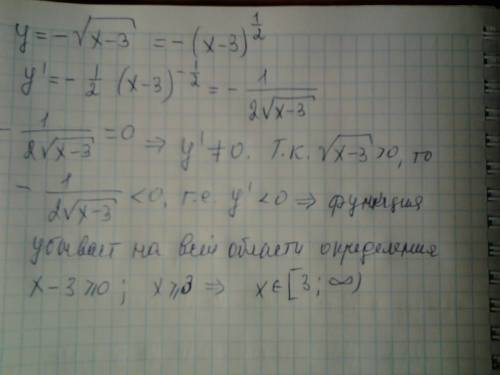 y = -√(x-3) = -(x-3)^(1/2)
y' = -1/2 (x-3)^(-1/2) = - 1/(2√(x-3))
- 1/(2√(x-3)) = 0 ⇒ y' ≠ 0. Т.к. √(x-3) > 0, то
- 1/(2√(x-3)) < 0, т.е. y' < 0 ⇒ функция
убывает на всей области определения
x-3 ≥ 0; x ≥ 3 ⇒ x ∈ [3; ∞)